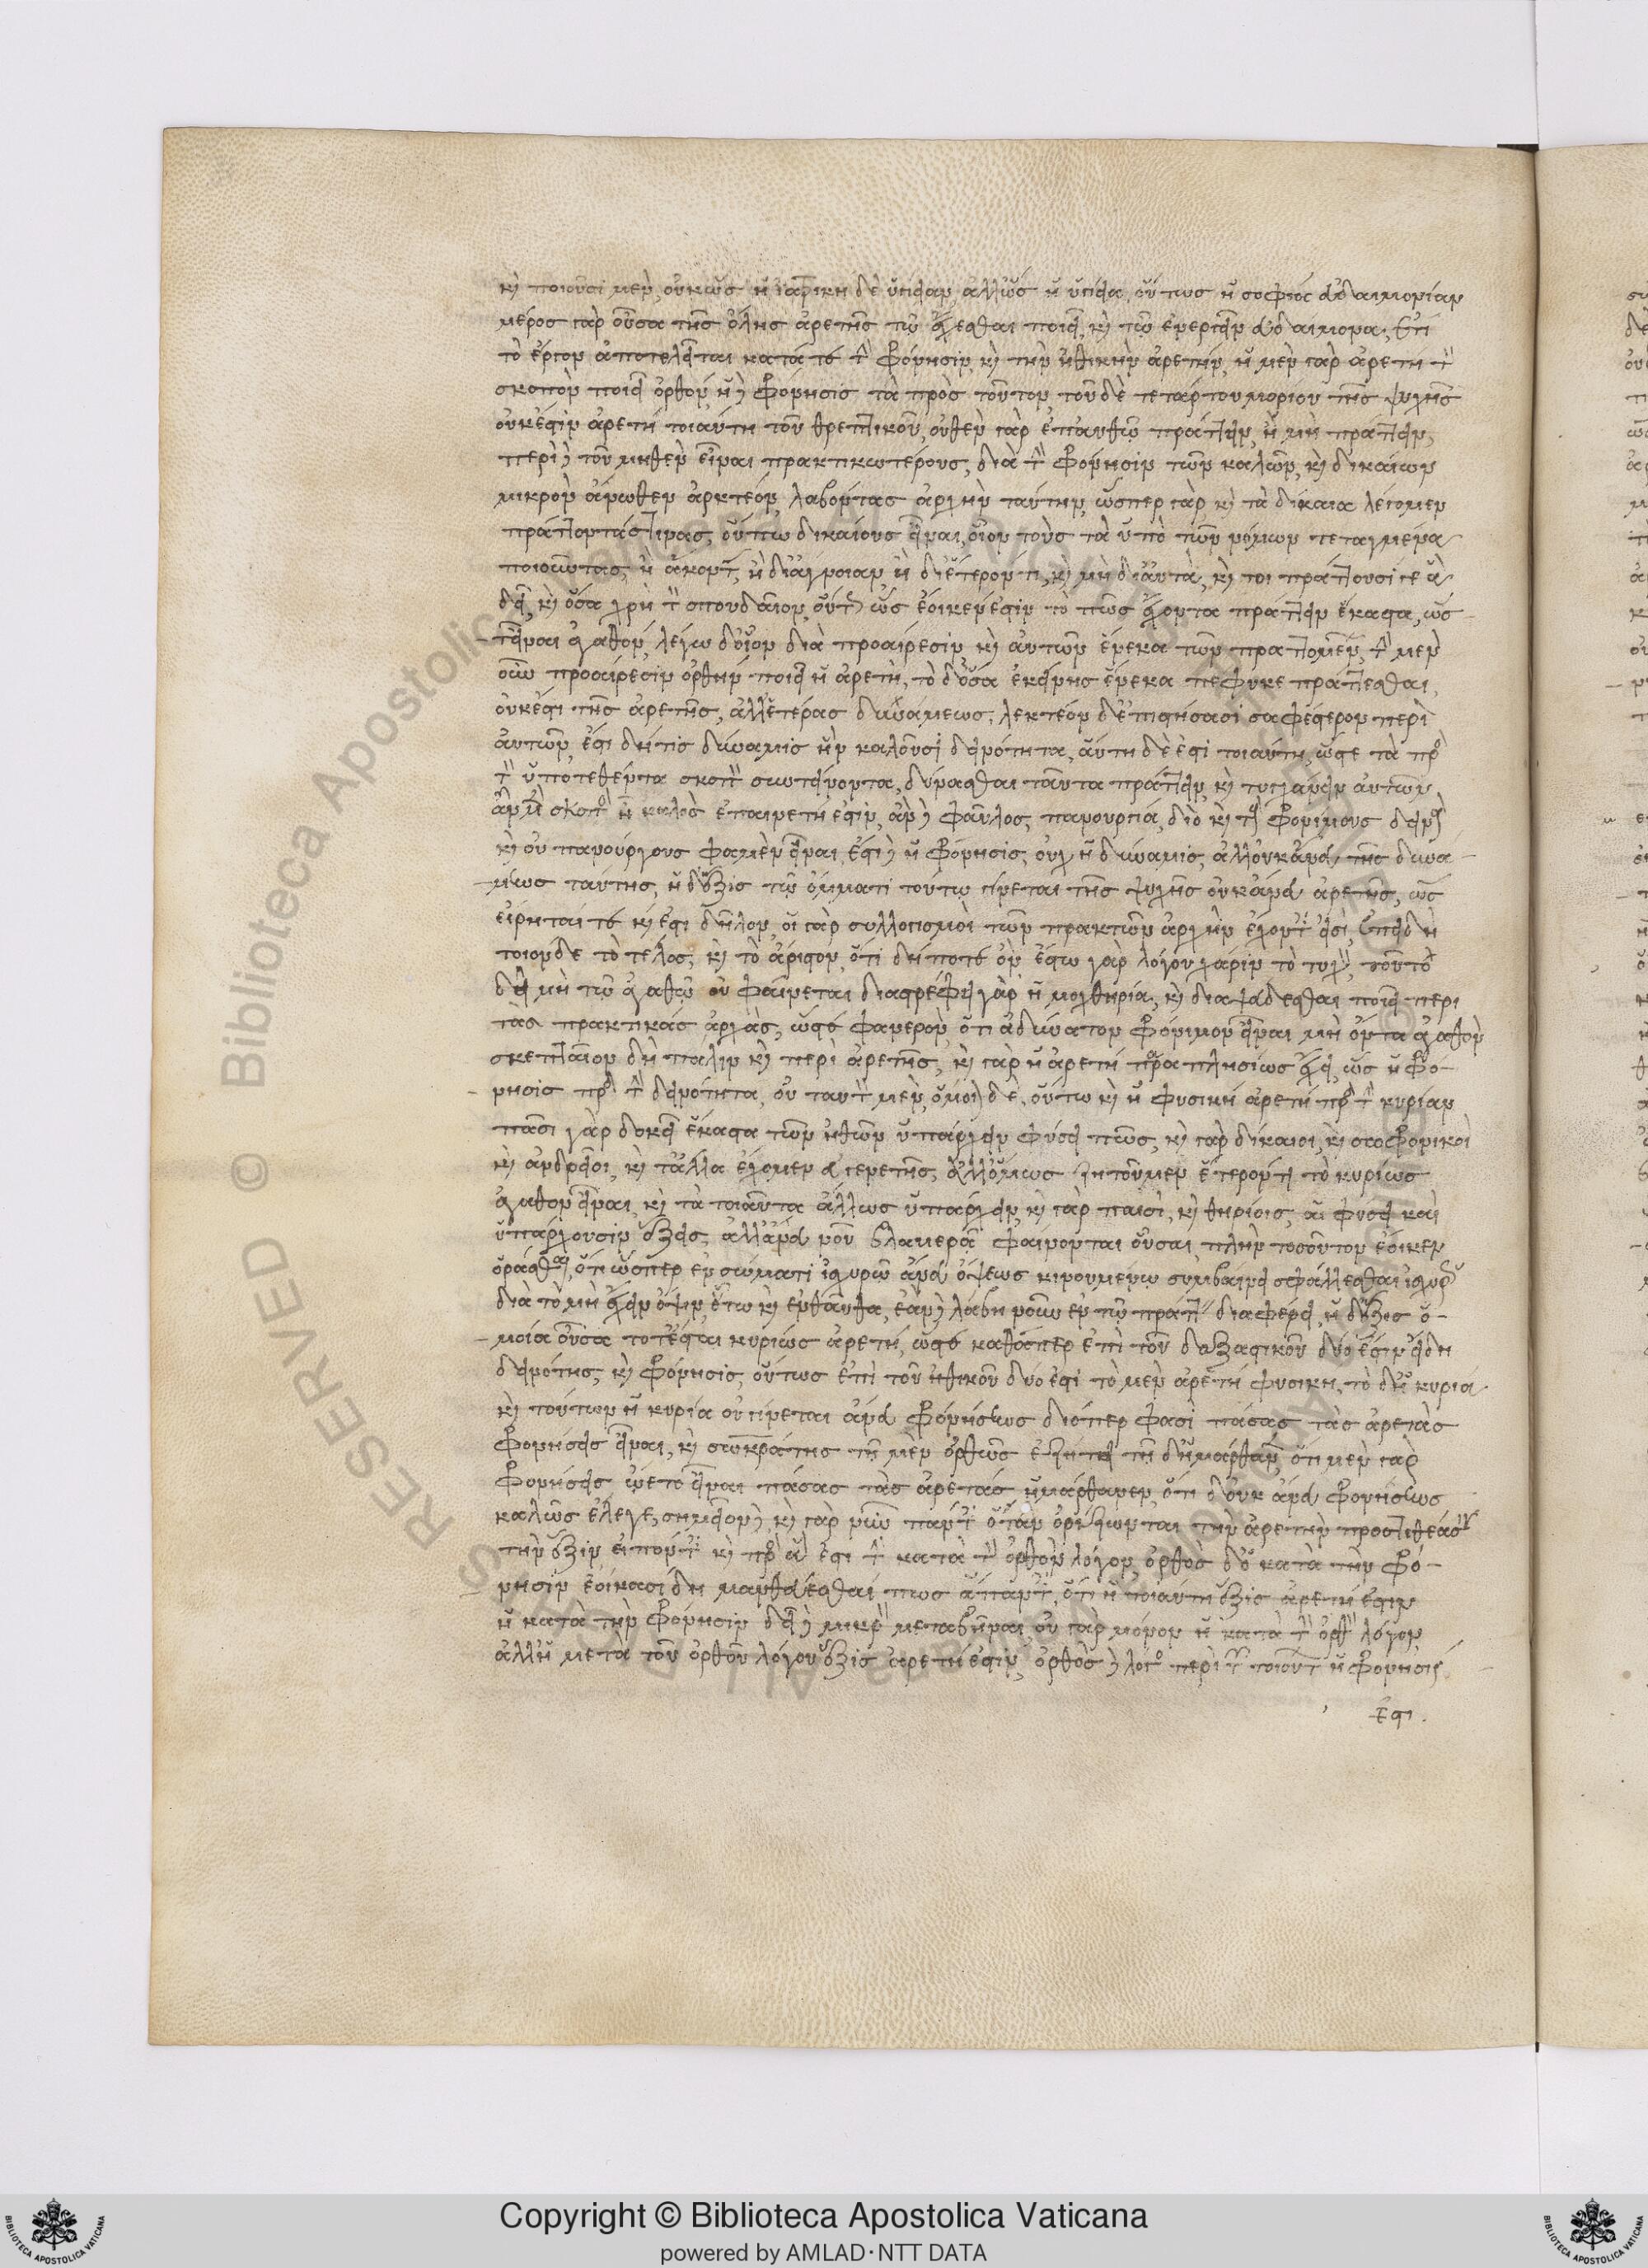 καὶ ποιοῦσι μέν, οὐκ ὡς ἡ ἰατρικὴ δὲ ὑγίειαν, ἀλλ' ὡς ἡ ὑγίεια, οὕτως ἡ σοφία εὐδαιμονίαν
μέρος γὰρ οὖσα τῆς ὅλης ἀρετῆς τῷ ἔχεσθαι ποιεῖ, καὶ τῷ ἐνεργεῖν εὐδαίμονα, ἔτι
τὸ ἔργον ἀποτελεῖται κατά τε τὴν φρόνησιν, καὶ τὴν ἠθικὴν ἀρετήν, ἡ μὲν γὰρ ἀρετὴ τὸν
σκοπὸν ποιεῖ ὀρθόν, ἡ δὲ φρόνησις τὰ πρὸς τοῦτον, τοῦ δὲ τετάρτου μορίου τῆς ψυχῆς
οὐκ ἔστιν ἀρετὴ τοιαύτη τοῦ θρεπτικοῦ, οὐθὲν γὰρ ἐπ' αὐτῷ πράττειν, ἢ μὴ πράττειν,
περὶ δὲ τοῦ μηθὲν εἶναι πρακτικωτέρους, διὰ τὴν φρόνησιν τῶν καλῶν, καὶ δικαίων
μικρὸν ἄνωθεν ἀρκτέον, λαβόντας ἀρχὴν ταύτην, ὥσπερ γὰρ καὶ τὰ δίκαια λέγομεν
πράττοντάς τινας, οὔπω δικαίους εἶναι, οἷον τοὺς τὰ ὑπὸ τῶν νόμων τεταγμένα
ποιοῦντας, ἢ ἄκοντας, ἢ δι' ἄγνοιαν ἢ δι' ἕτερόν τι, καὶ μὴ δι' αὐτὰ, καί τοι πράττουσί γε ἃ
δεῖ, καὶ ὅσα χρὴ τὸν σπουδαῖον, οὕτως ὡς ἔοικεν ἔστιν τὸ πῶς ἔχοντα πράττειν ἕκαστα, ὥστ'
εἶναι ἀγαθόν, λέγω δ' οἷον διὰ προαίρεσιν καὶ αὐτῶν ἕνεκα τῶν πραττομένων, τὴν μὲν
οὖν προαίρεσιν ὀρθὴν ποιεῖ ἡ ἀρετή, τὸ δ' ὅσα ἐκείνης ἕνεκα πέφυκε πράττεσθαι,
οὐκ ἔστι τῆς ἀρετῆς, ἀλλ' ἑτέρας δυνάμεως, λεκτέον δ' ἐπιστήσασι σαφέστερον περὶ
αὐτῶν, ἔστι δή τις δύναμις ἣν καλοῦσι δεινότητα, αὕτη δέ ἐστι τοιαύτη, ὥστε τὰ πρὸς
τὸν ὑποτεθέντα σκοπὸν συντείνοντα, δύνασθαι ταῦτα πράττειν, καὶ τυγχάνειν αὐτῶν
ἂν μὲν ὁ σκοπὸς ᾖ καλὸς ἐπαινετή ἐστιν, ἂν δὲ φαῦλος, πανουργία, διὸ καὶ τοὺς φρονίμους δεινοὺς
καὶ οὐ πανούργους φαμὲν εἶναι, ἔστι δὲ ἡ φρόνησις, οὐχ ἡ δύναμις, ἀλλ' οὐκ ἄνευ τῆς δυνά-
μεως ταύτης, ἡ δ' ἕξις τῷ ὄμματι τούτῳ γίνεται τῆς ψυχῆς οὐκ ἄνευ ἀρετῆς, ὡς
εἴρηταί τε καὶ ἔστι δῆλον, οἱ γὰρ συλλογισμοὶ τῶν πρακτῶν ἀρχὴν ἔχοντές εἰσι, ἐπειδὴ
τοιόνδε τὸ τέλος, καὶ τὸ ἄριστον, ὅτι δήποτε ὄν, ἔστω γὰρ λόγου χάριν τὸ τυχόν, τοῦτο δ'
εἰ μὴ τῷ ἀγαθῷ οὐ φαίνεται διαστρέφει γὰρ ἡ μοχθηρία, καὶ διαψεύδεσθαι ποιεῖ περὶ
τὰς πρακτικὰς ἀρχὰς, ὥστε φανερὸν, ὅτι ἀδύνατον φρόνιμον εἶναι μὴ ὄντα ἀγαθὸν
σκεπτέον δὴ πάλιν καὶ περὶ ἀρετῆς, καὶ γὰρ ἡ ἀρετὴ παραπλησίως ἔχει, ὡς ἡ φρό-
νησις πρὸς τὴν δεινότητα, οὐ ταὐτὸ μέν, ὅμοιον δὲ, οὕτω καὶ ἡ φυσικὴ ἀρετὴ πρὸς τὴν κυρίαν
πᾶσι γὰρ δοκεῖ ἕκαστα τῶν ἠθῶν ὑπάρχειν φύσει πως, καὶ γὰρ δίκαιοι, καὶ σωφρονικοὶ
καὶ ἀνδρεῖοι, καὶ τἆλλα ἔχομεν εὐθὺς ἐκ γενετῆς, ἀλλ' ὅμως ζητοῦμεν ἕτερόν τι τὸ κυρίως
ἀγαθὸν εἶναι, καὶ τὰ τοιαῦτα ἄλλως ὑπάρχειν, καὶ γὰρ παισὶ, καὶ θηρίοις, αἱ φύσει καὶ
ὑπάρχουσιν ἕξεις, ἀλλ' ἄνευ νοῦ βλαβεραὶ φαίνονται οὖσαι, πλὴν τοσοῦτον ἔοικεν
ὁρᾶσθαι, ὅτι ὥσπερ ἐν σώματι ἰσχυρῷ ἄνευ ὄψεως κινουμένῳ συμβαίνει σφάλλεσθαι ἰσχυρῶς
διὰ τὸ μὴ ἔχειν ὄψιν, οὕτω καὶ ἐνταῦθα, ἐὰν δὲ λάβῃ νοῦν ἐν τῷ πράττειν διαφέρει, ἡ δ' ἕξις ὁ-
μοία οὖσα τότε ἔσται κυρίως ἀρετή, ὥστε καθάπερ ἐπὶ τοῦ δοξαστικοῦ δύο ἐστὶν εἴδη
δεινότης, καὶ φρόνησις, οὕτως ἐπὶ τοῦ ἠθικοῦ δύο ἐστὶ τὸ μὲν ἀρετὴ φυσικὴ, τὸ δ' ἡ κυρία
καὶ τούτων ἡ κυρία οὐ γίνεται ἄνευ φρονήσεως διόπερ φασὶ πάσας τὰς ἀρετὰς
φρονήσεις εἶναι, καὶ σωκράτης τῇ μὲν ὀρθῶς ἐζήτει τῇ δ' ἡμάρτανεν, ὅτι μὲν γὰρ
φρονήσεις ᾤετο εἶναι πάσας τὰς ἀρετάς ἡμάρτανεν, ὅτι δ' οὐκ ἄνευ φρονήσεως
καλῶς ἔλεγε, σημεῖον δὲ, καὶ γὰρ νῦν πάντες ὅταν ὁρίζωνται τὴν ἀρετὴν προστιθέασι
τὴν ἕξιν, εἰπόντες καὶ πρὸς ἅ ἐστι τὴν κατὰ τὸν ὀρθὸν λόγον, ὀρθὸς δ' ὁ κατὰ τὴν φρό-
νησιν ἐοίκασι δὴ μαντεύεσθαί πως ἅπαντες, ὅτι ἡ τοιαύτη ἕξις ἀρετή ἐστιν
ἡ κατὰ τὴν φρόνησιν δεῖ δὲ μικρὸν μεταβῆναι, οὐ γὰρ μόνον ἡ κατὰ τὸν ὀρθὸν λόγον
ἀλλ' ἡ μετὰ τοῦ ὀρθοῦ λόγου ἕξις ἀρετή ἐστιν, ὀρθὸς δὲ λόγος περὶ τῶν τοιούτων ἡ φρόνησίς
ἐστι.
Copyright © Biblioteca Apostolica Vaticana
powered by AMLAD·NTT DATA